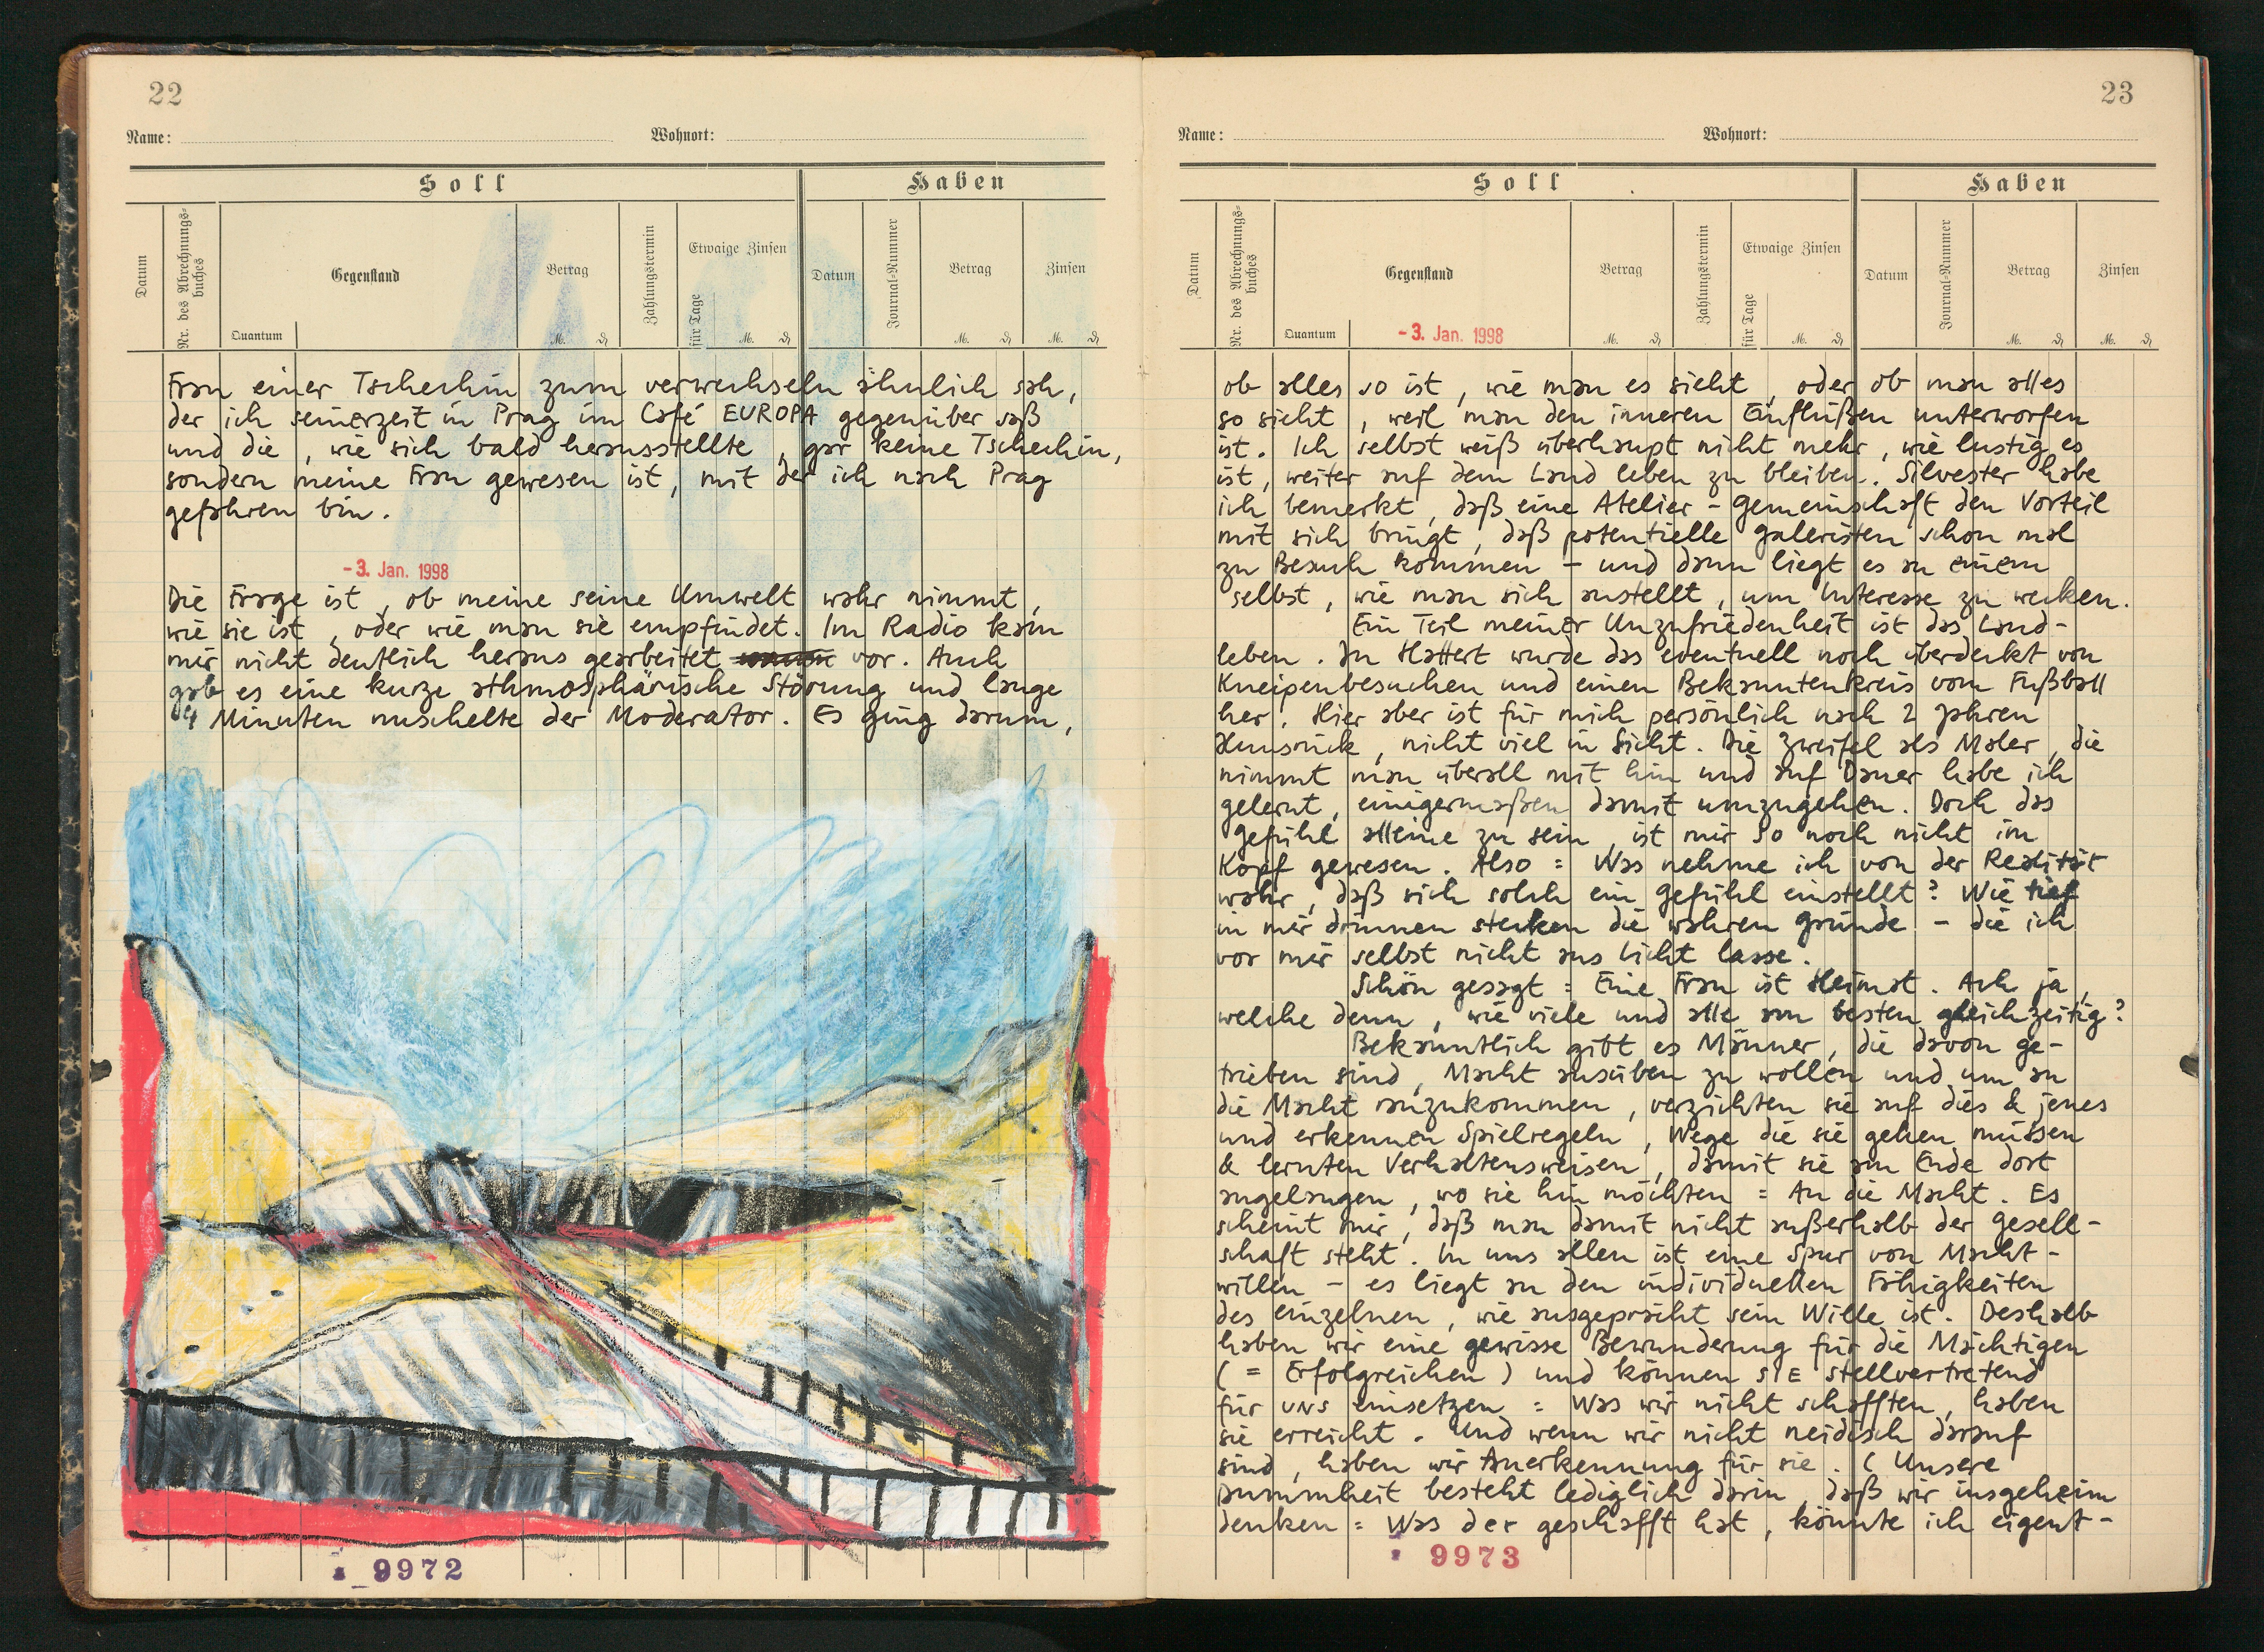 22
Name: Wohnort:
Soll Haben
Datum
Nr. des Abrechnungs-
buches
Gegenstand
Quantum
Betrag
M. ₰
Zahlungstermin
Etwaige Zinsen
für Tage
M. ₰
Datum
Journal-Nummer
Betrag
M. ₰
Zinsen
M. ₰
Frau einer Tschechin zum verwechseln ähnlich sah,
der ich seinerzeit in Prag im Café EUROPA gegenüber saß
und die, wie sich bald herausstellte, gar keine Tschechin,
sondern meine Frau gewesen ist, mit der ich nach Prag
gefahren bin.
-3. Jan. 1998
Die Frage ist, ob meine seine Umwelt wahr nimmt,
wie sie ist, oder wie man sie empfindet. Im Radio kam
mir nicht deutlich heraus gearbeitet vor. Auch
gab es eine kurze athmosphärische Störung und lange
4 Minuten nuschelte der Moderator. Es ging darum,
9972
23
Name: Wohnort:
Soll Haben
Datum
Nr. des Abrechnungs-
buches
Gegenstand
Quantum
-3. Jan. 1998
Betrag
M. ₰
Zahlungstermin
Etwaige Zinsen
für Tage
M. ₰
Datum
Journal-Nummer
Betrag
M. ₰
Zinsen
M. ₰
ob alles so ist, wie man es sieht, oder ob man alles
so sieht, weil man den inneren Einflüßen unterworfen
ist. Ich selbst weiß überhaupt nicht mehr, wie lustig es
ist, weiter auf dem Land leben zu bleiben. Silvester habe
ich bemerkt, daß eine Atelier-Gemeinschaft den Vorteil
mit sich bringt, daß potentielle Galeristen schon mal
zu Besuch kommen - und dann liegt es an einem
selbst, wie man sich anstellt, um Interesse zu wecken.
Ein Teil meiner Unzufriedenheit ist das Land-
leben. In Hattert wurde das eventuell noch überdeckt von
Kneipenbesuchen und einen Bekanntenkreis vom Fußball
her. Hier aber ist für mich persönlich nach 2 Jahren
Hunsrück, nicht viel in Sicht. Die Zweifel als Maler, die
nimmt man überall mit hin und auf Dauer habe ich
gelernt, einigermaßen damit umzugehen. Doch das
Gefühl alleine zu sein, ist mir so noch nicht im
Kopf gewesen. Also: Was nehme ich von der Realität
wahr, daß sich solch ein Gefühl einstellt? Wie tief
in mir drinnen stecken die wahren Gründe - die ich
vor mir selbst nicht ans Licht lasse.
Schön gesagt: Eine Frau ist Heimat. Ach ja,
welche denn, wie viele und alle am besten gleichzeitig?
Bekanntlich gibt es Männer, die davon ge-
trieben sind, Macht ausüben zu wollen und um an
die Macht ranzukommen, verzichten sie auf dies & jenes
und erkennen Spielregeln, Wege die sie gehen müssen
& lernten Verhaltensweisen, damit sie am Ende dort
angelangen, wo sie hin möchten: An die Macht. Es
scheint mir, daß man damit nicht außerhalb der Gesell-
schaft steht. In uns allen ist eine Spur von Macht-
willen - es liegt an den individuellen Fähigkeiten
des einzelnen, wie ausgeprächt sein Wille ist. Deshalb
haben wir eine gewisse Bewunderung für die Mächtigen
(= Erfolgreichen) und können SIE stellvertretend
für UNS einsetzen: Was wir nicht schafften, haben
sie erreicht. Und wenn wir nicht neidisch darauf
sind, haben wir Anerkennung für sie. (Unsere
Dummheit besteht lediglich darin, daß wir insgeheim
denken: Was der geschafft hat, könnte ich eigent-
9973